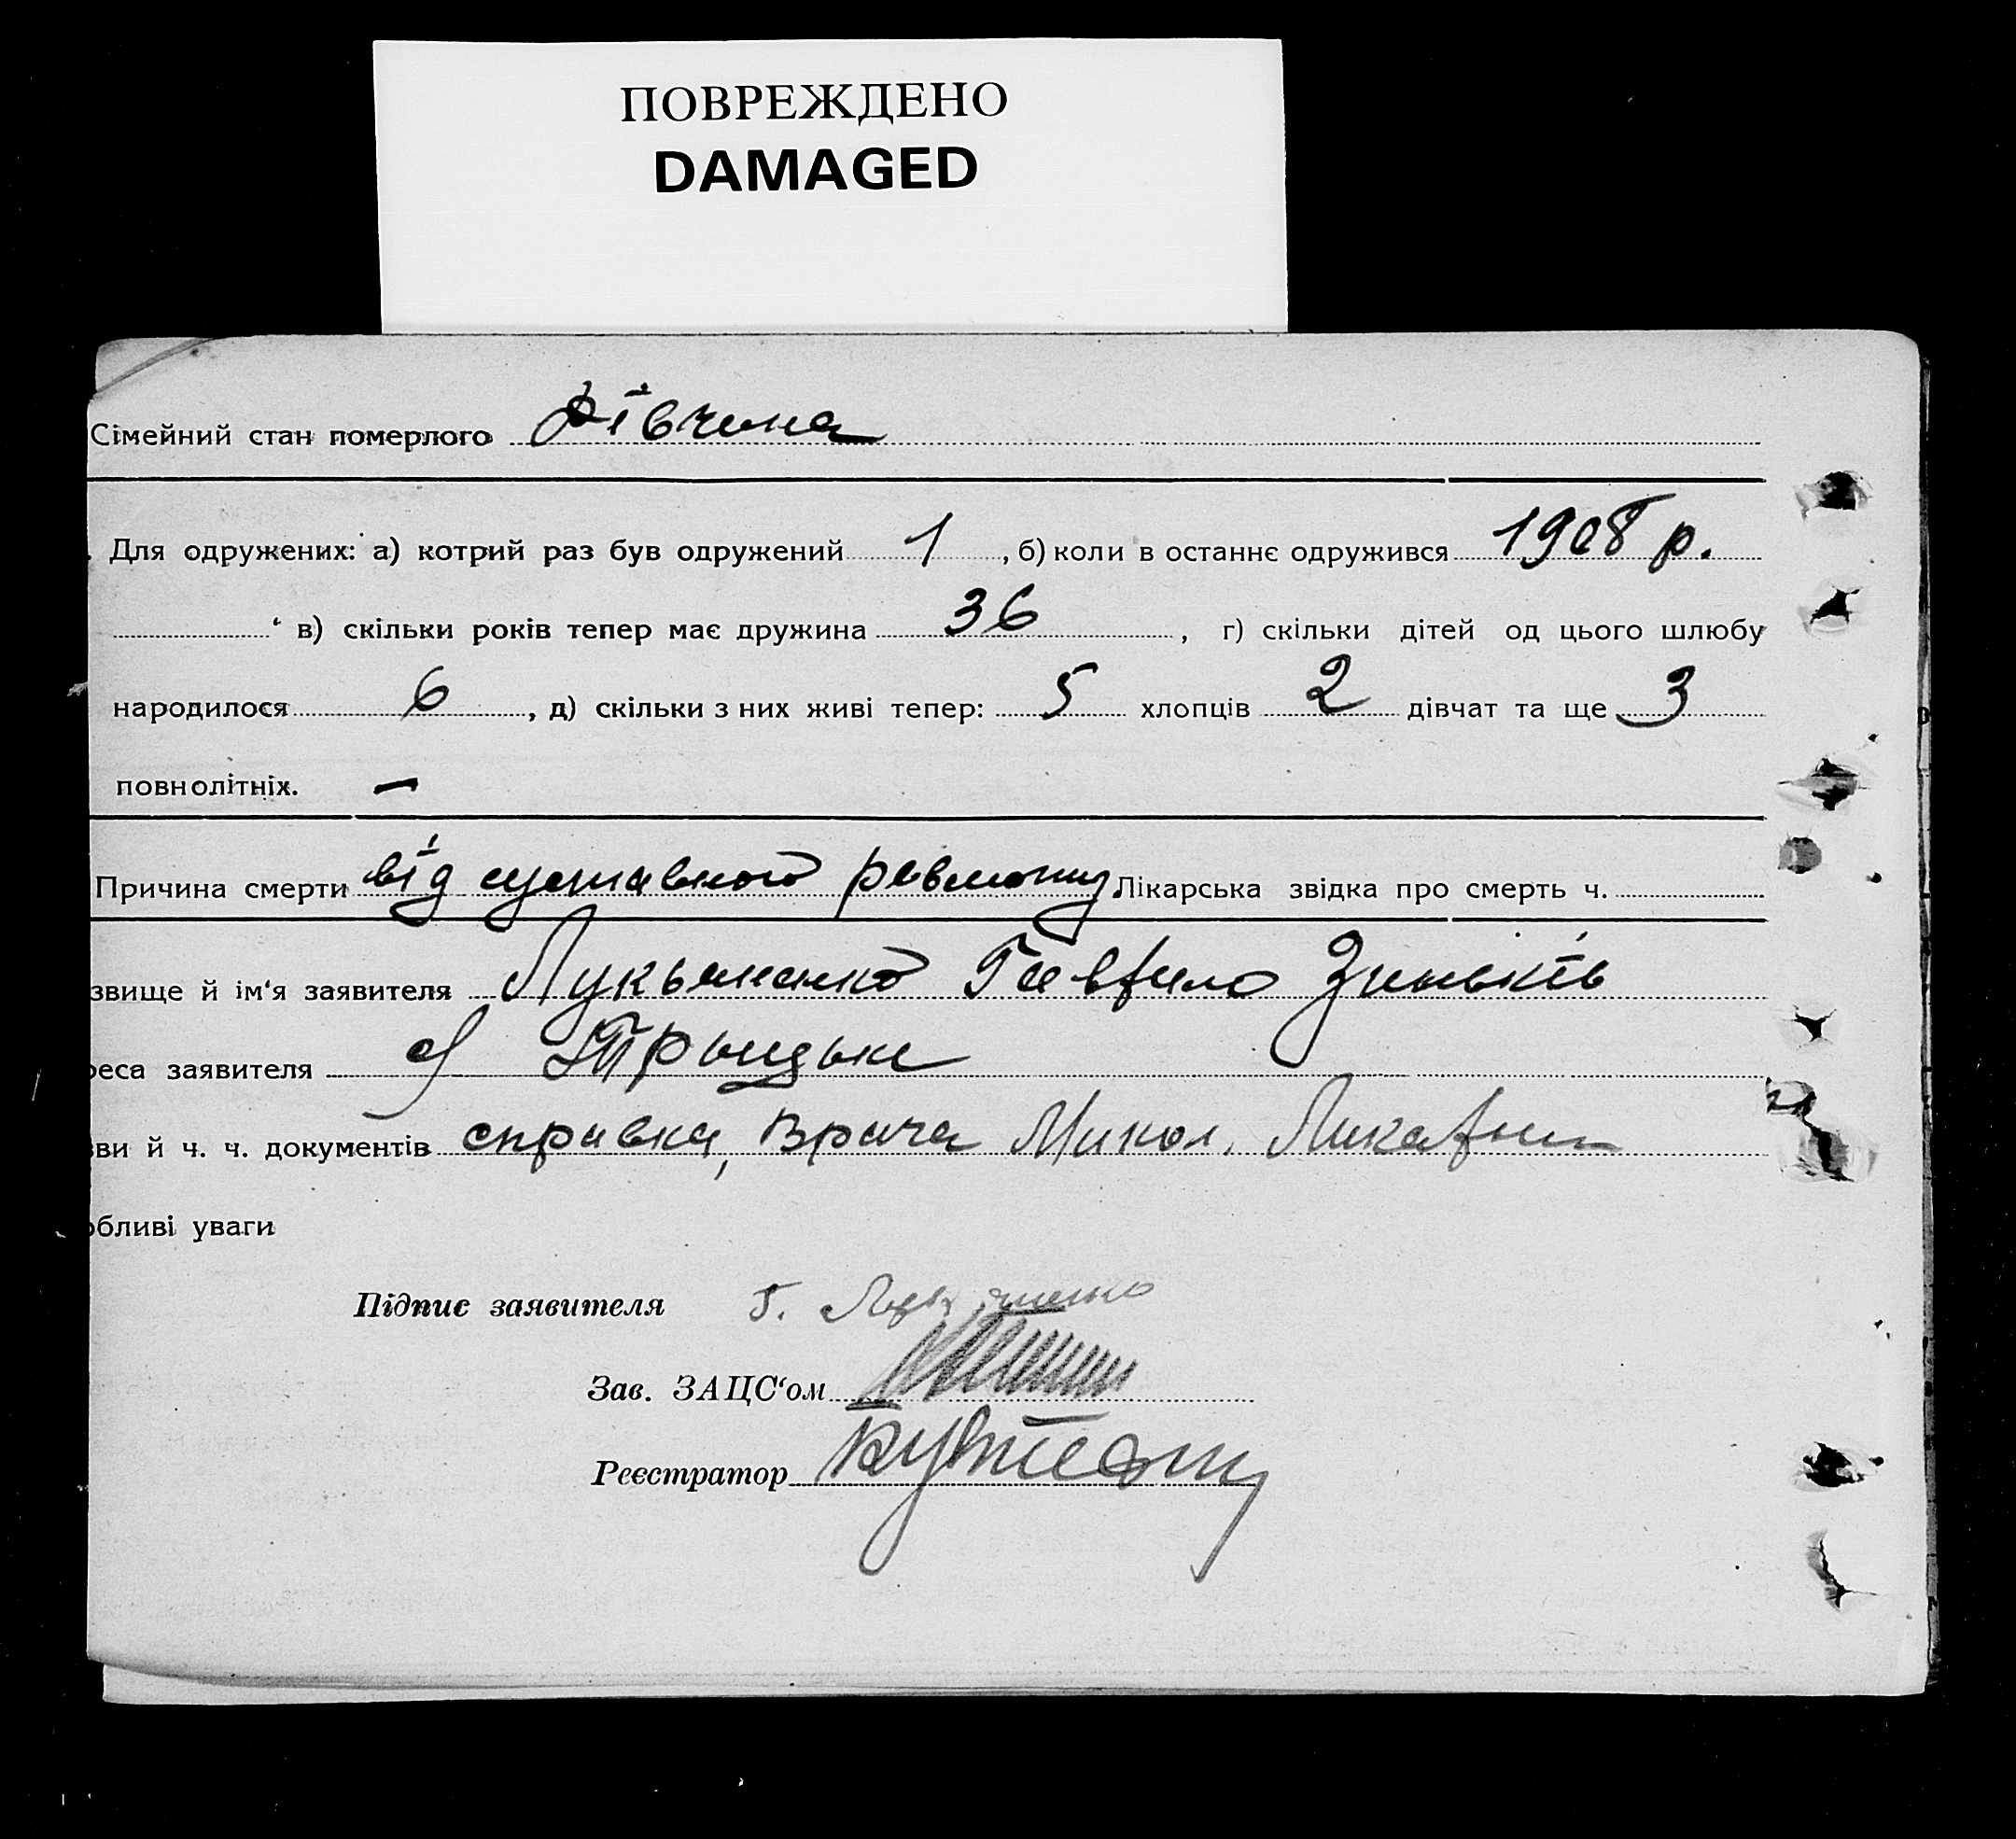 ПОВРЕЖДЕНО
DAMAGED
Сімейний стан померлого дівчина
Для одружених: а) котрий раз був одружений 1, б) коли в останнє одружився 1908 р.
в) скільки років тепер має дружина 36, г) скільки дітей од цього шлюбу
народилося 6, д) скільки з них живі тепер: 5 хлопців 2 дівчат та ще 3
повнолітніх. —
Причина смерти від суставного ревматизму Лікарська звідка про смерть ч.
звище й ім‘я заявителя Лукьяненко Гаврило Зиньків
реса заявителя с
зви й ч. ч. документів справка, врача Микол.
обливі уваги
Підпис заявителя Г. Лукьяненко
Зав. ЗАЦС‘ом
Реєстратор